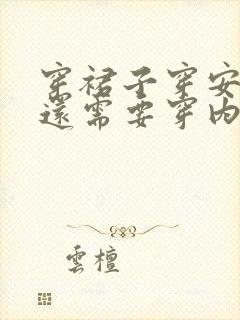 穿裙子穿安
還需要穿内
雲檀